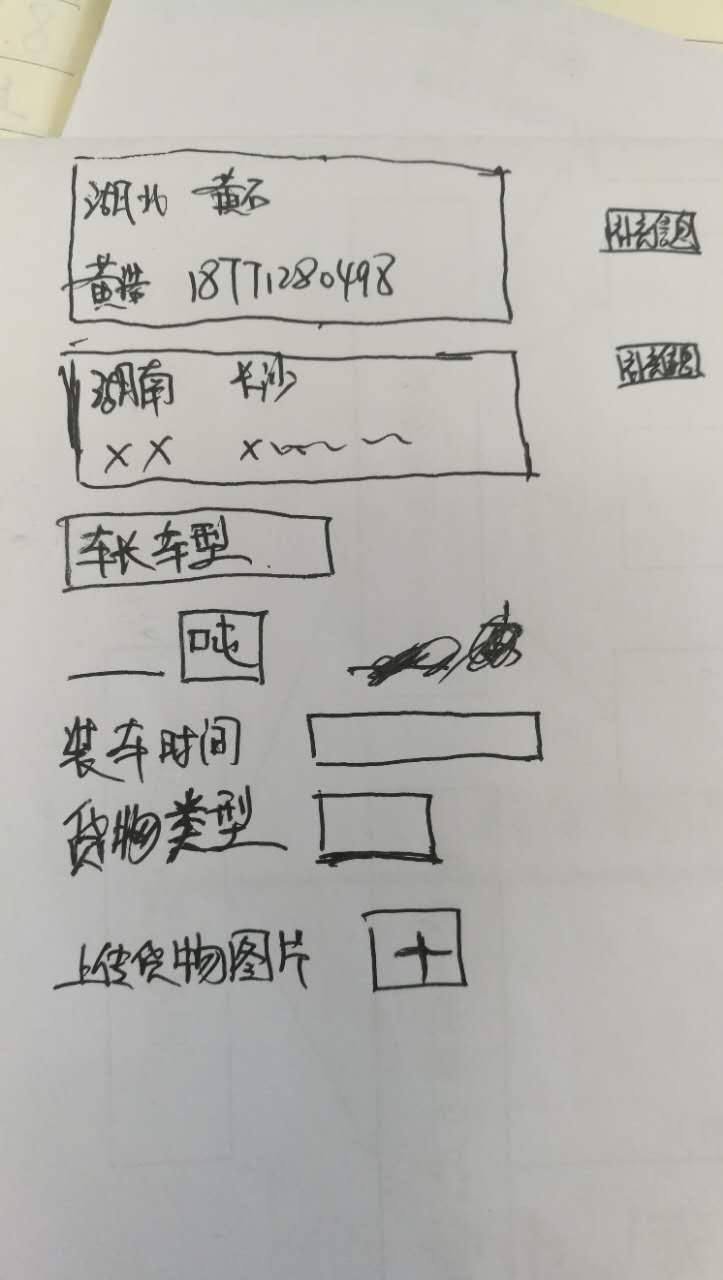 湖北 黄石
18771280498
湖南 长沙
×× ×
车长车型
吨
装车时间
货物类型
上传货物图片 +